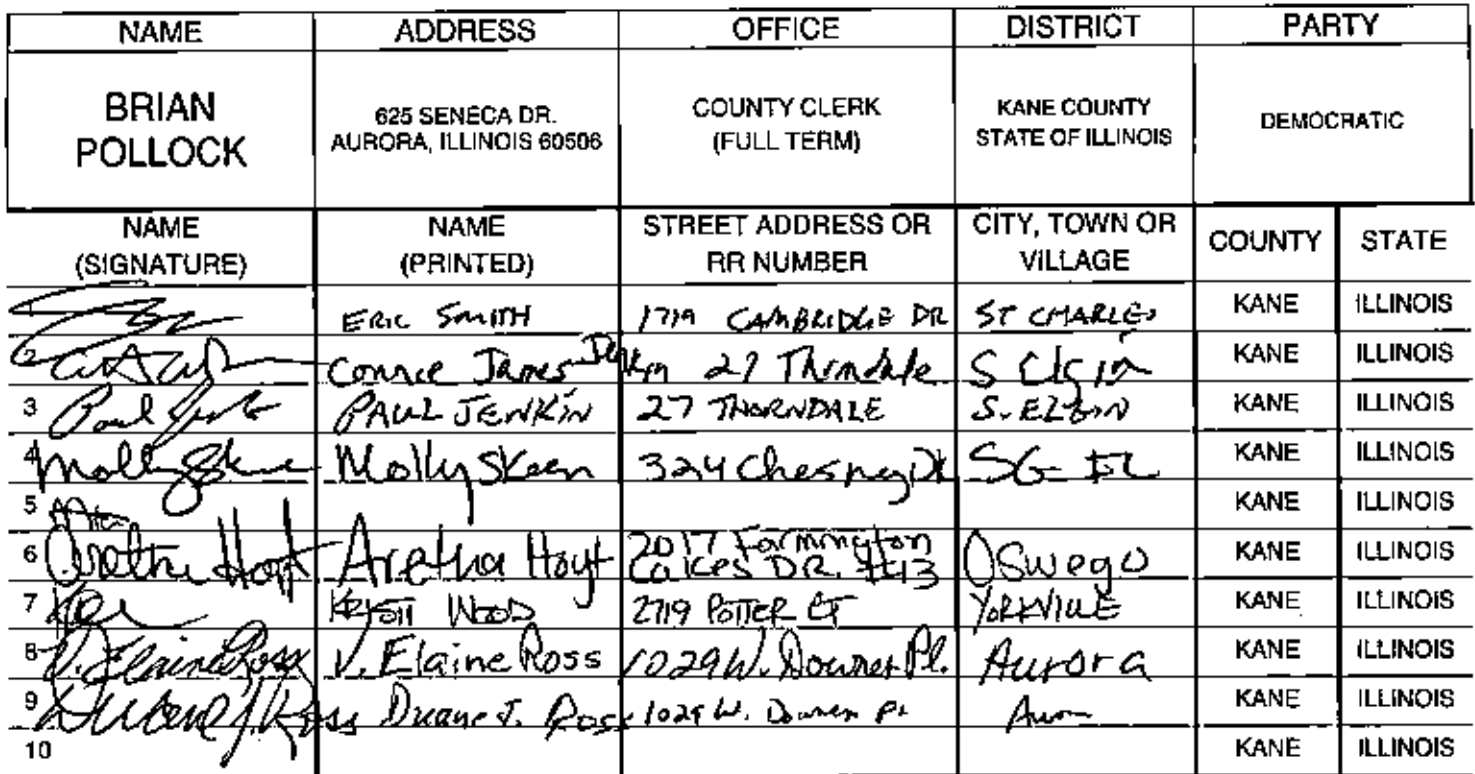 NAME ADDRESS OFFICE DISTRICT PARTY
BRIAN POLLOCK 625 SENECA DR. AURORA, ILLINOIS 60506 COUNTY CLERK (FULL TERM) KANE COUNTY STATE OF ILLINOIS DEMOCRATIC
NAME (SIGNATURE) NAME (PRINTED) STREET ADDRESS OR RR NUMBER CITY, TOWN OR VILLAGE COUNTY STATE
ERIC SMITH 1719 CAMBRIDGE DR ST CHARLES KANE ILLINOIS
2 Connie James Jenkin 27 Thorndale S Elgin KANE ILLINOIS
3 Paul PAUL JENKIN 27 THORNDALE S. ELGIN KANE ILLINOIS
4 Molly Skeen Molly Skeen 324 Dr SG IL KANE ILLINOIS
5 KANE ILLINOIS
6 Aretha Hoyt Aretha Hoyt 2017 Farmington Lakes DR. #13 Oswego KANE ILLINOIS
7 WOOD 2719 POTTER CT YORKVILLE KANE ILLINOIS
8 V. Elaine Ross V. Elaine Ross 1029 W. Downer Pl. Aurora KANE ILLINOIS
9 Duane J. Ross Duane J. Ross 1029 W. Downer Pl KANE ILLINOIS
10 KANE ILLINOIS